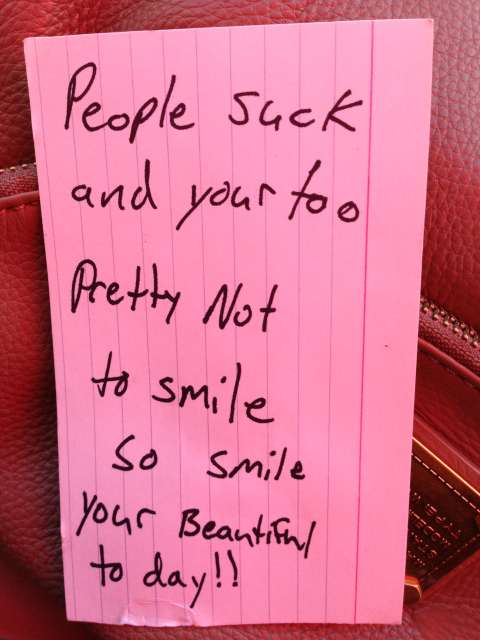 People suck
and your too
Pretty Not
to smile
so smile
your Beautiful
to day!!